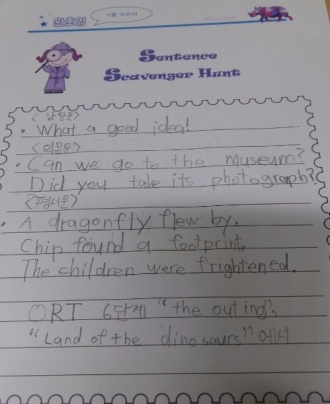 Sentence
Scavenger Hunt
<감탄문>
• What a good idea!
<의문문>
• Can we go to the museum?
Did you take its photograph?
<평서문>
• A dragonfly flew by.
Chip found a footprint.
The children were frightened.
ORT 6단계 "the outing",
"Land of the dinosaurs" 에서